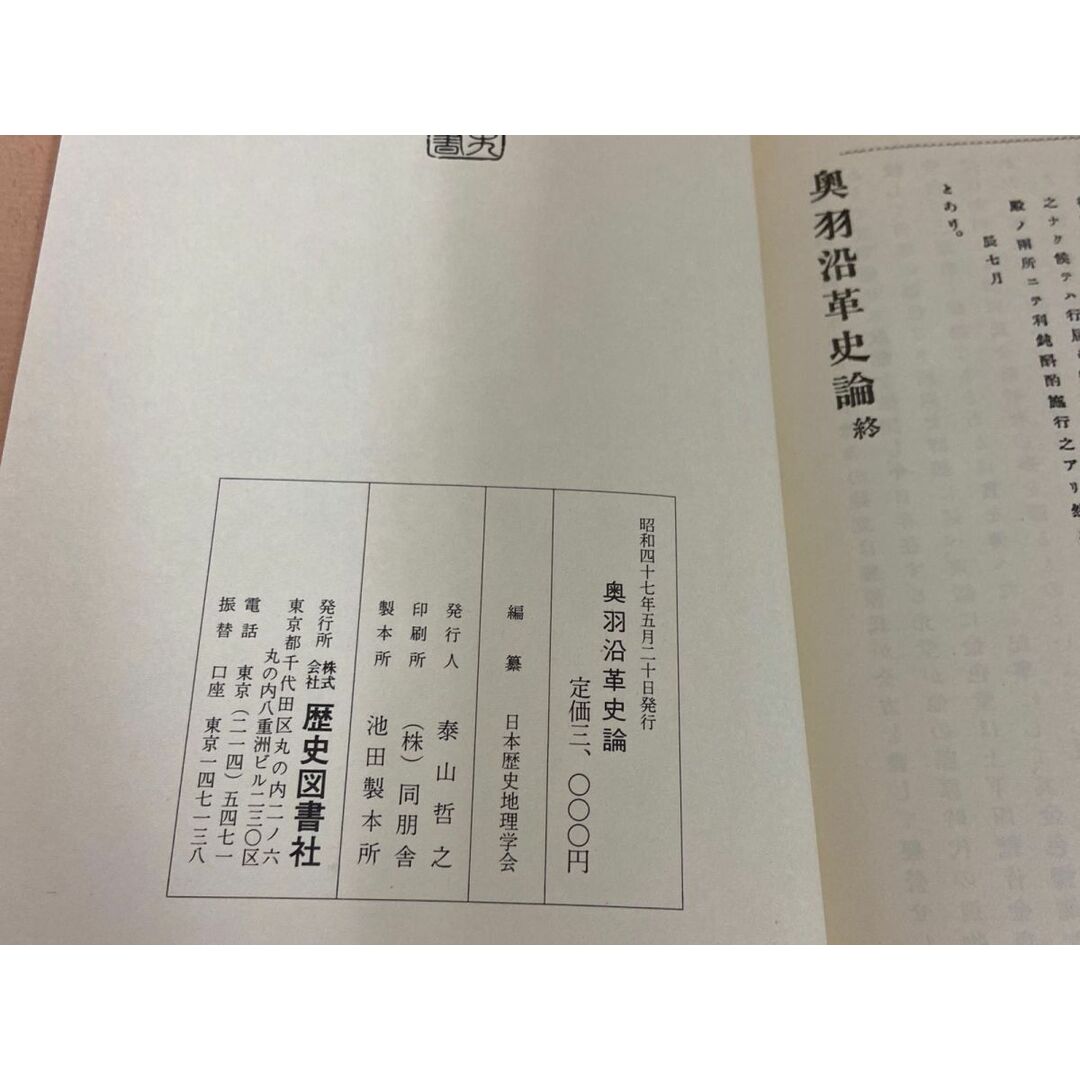 之アリ
殿ノ両所ニテ利鈍斟酌施行之アリ
辰七月
とあり。
奥羽沿革史論 終
昭和四十七年五月二十日発行
奥羽沿革史論
定価三、〇〇〇円
編纂 日本歴史地理学会
発行人 泰山哲之
印刷所 (株)同朋舎
製本所 池田製本所
発行所 株式会社 歴史図書社
東京都千代田区丸の内二ノ六
丸の内八重洲ビル二三〇区
電話 東京(二一四)五四七一
振替口座 東京一四七一三八